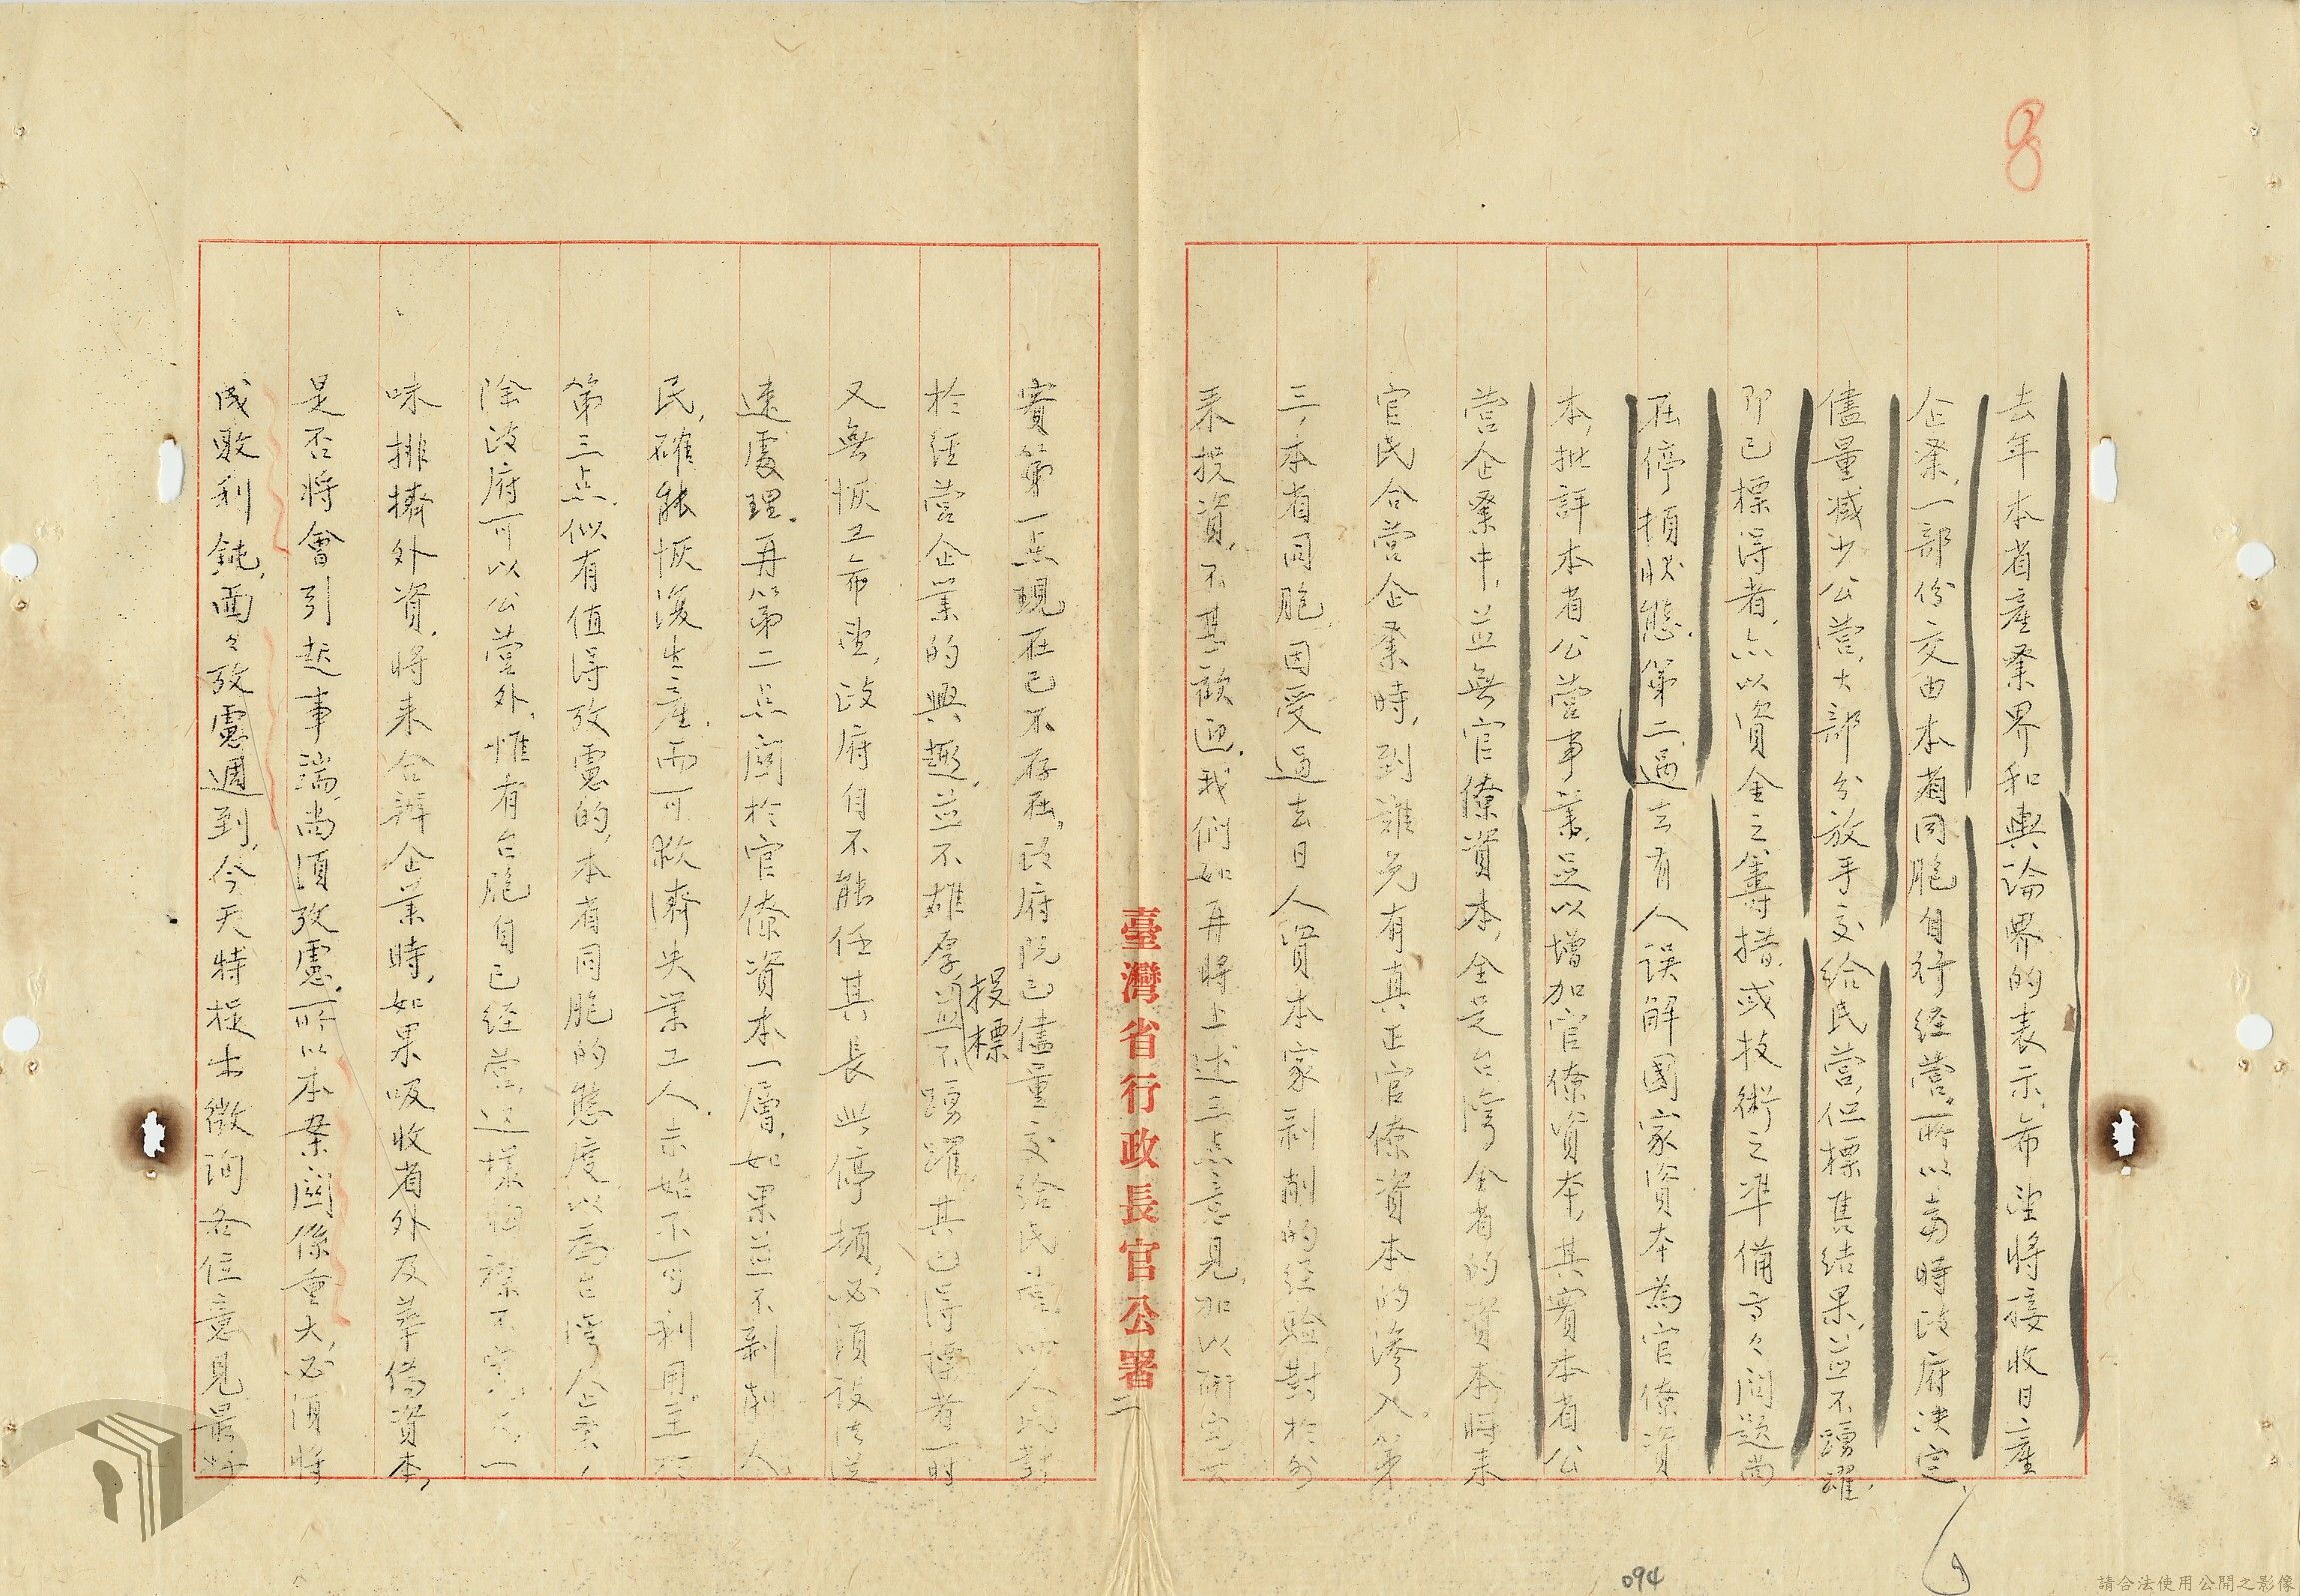 8
去年本省產業界和輿論界的表示,希望將接收日產
企業,一部份交由本省同胞自行經營,所以當時政府決定,
儘量減少公營,大部分放手交給民營,但標售結果,並不踴躍,
即已標得者,亦以資金之籌措,或技術之準備方々問題尚
在停頓狀態,第二,過去有人誤解國家資本為官僚資
本,批評本省公營事業,足以增加官僚資本,其實本省公
營企業中,並無官僚資本,全是台灣全省的資本,將來
官民合營企業時,到難免有真正官僚資本的滲入。第
三,本省同胞,因受過去日人資本家剝削的經驗,對於外
來投資,不甚歡迎,我們如再將上述三点意見,加以研究,
臺灣省行政長官公署
二
實第一点現在已不存在,政府既已儘量交給民營,而人民對
於經營企業的興趣,並不雄厚,投標並不踴躍,其已得標者一時
又無恢工希望,政府自不能任其長此停頓,必須設法從
速處理。再以第二点關於官僚資本一層,如果並不剝削人
民,確能恢復生產,而可救濟失業工人,亦始不可利用,至於
第三点,似有值得攷慮的,本省同胞的態度,以為台灣企業,
除政府可以公營外,惟有台胞自己經營,這樣
味排擠外資,將來合辦企業時,如果吸收省外及華僑資本,
是否將會引起事端,尚須攷慮,所以本案關係重大,必須將
成敗利鈍,面々攷慮週到,今天特提出徵詢各位意見,最好
094
請合法使用公開之影像